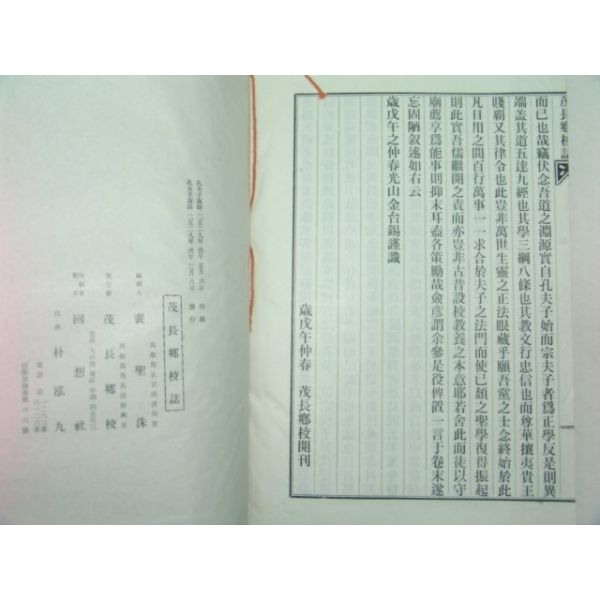 茂長鄉校誌
而已也哉竊伏念吾道之淵源實自孔夫子始而宗夫子者為正學反是則異
端蓋其道五達九經也其學三綱八條也其教文行忠信也而尊華攘夷貴王
賤覇又其律令也此豈非萬世生靈之正法眼藏乎願吾黨之士念終始於此
凡日用之間百行萬事一一求合於夫子之法門而使已頹之聖學復得振起
則此實吾儒繼開之責而亦豈非古昔設校敎養之本意耶若舍此而徒以守
廟薦享為能事則抑末耳盍各策勵哉僉彦謂余參是役俾置一言于卷末遂
忘固陋叙述如右云
歲戊午之仲春光山金台錫謹識
歲戊午仲春 茂長鄉校開刊
孔夫子誕降 二五二九年 戊午
孔夫子誕降 二五二九年 戊午 二月 八日 發行
茂長鄉校誌
編輯人 裵聖洙
發行所 茂長鄉校
印刷所 回想社
代表 朴泓九